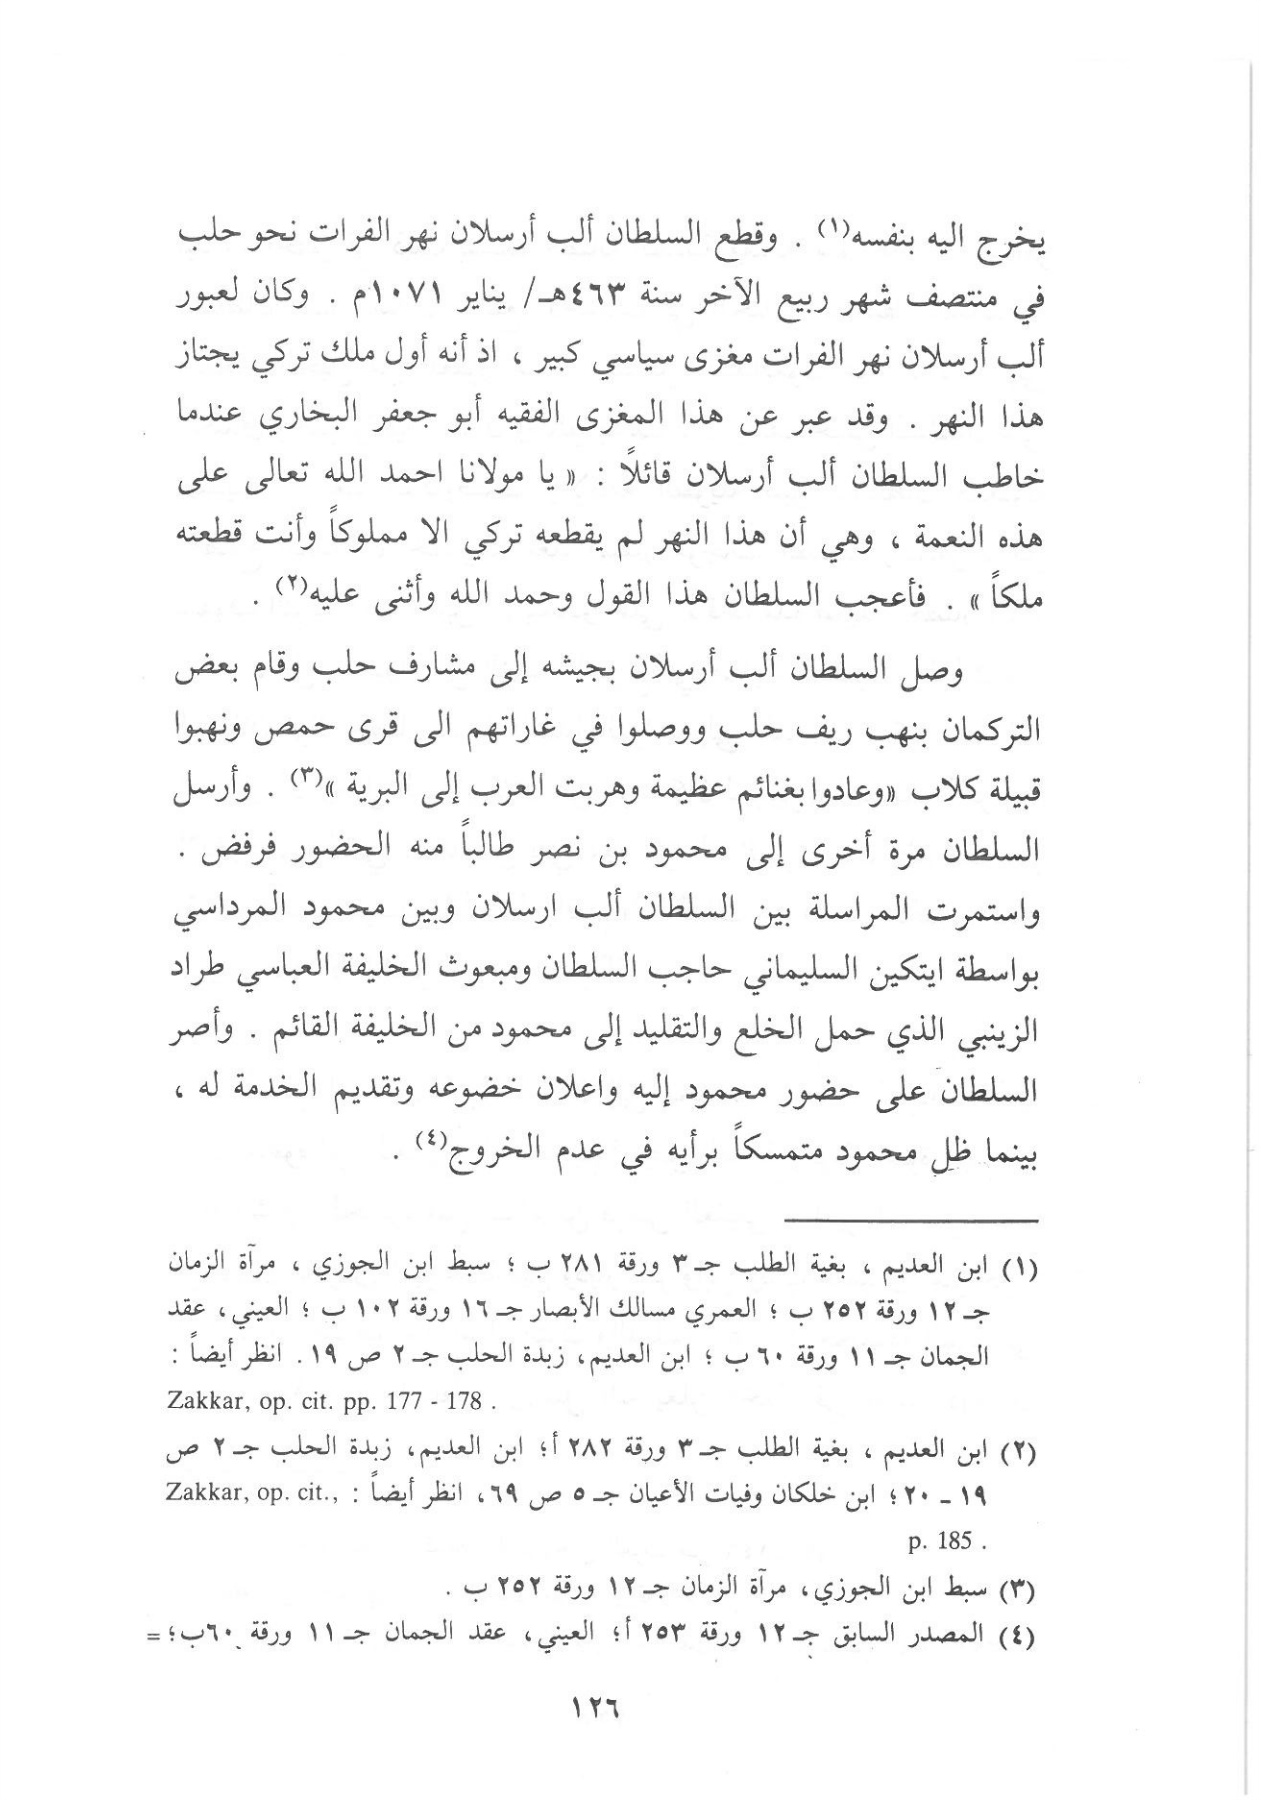 يخرج اليه بنفسه(١) . وقطع السلطان ألب أرسلان نهر الفرات نحو حلب
في منتصف شهر ربيع الآخر سنة ٤٦٣هـ/ يناير ١٠٧١م . وكان لعبور
ألب أرسلان نهر الفرات مغزى سياسي كبير ، اذ أنه أول ملك تركي يجتاز
هذا النهر . وقد عبر عن هذا المغزى الفقيه أبو جعفر البخاري عندما
خاطب السلطان ألب أرسلان قائلاً : « يا مولانا احمد الله تعالى على
هذه النعمة ، وهي أن هذا النهر لم يقطعه تركي الا مملوكاً وأنت قطعته
ملكاً » . فأعجب السلطان هذا القول وحمد الله وأثنى عليه(٢) .
وصل السلطان ألب أرسلان بجيشه إلى مشارف حلب وقام بعض
التركمان بنهب ريف حلب ووصلوا في غاراتهم الى قرى حمص ونهبوا
قبيلة كلاب «وعادوا بغنائم عظيمة وهربت العرب إلى البرية »(٣) . وأرسل
السلطان مرة أخرى إلى محمود بن نصر طالباً منه الحضور فرفض .
واستمرت المراسلة بين السلطان ألب ارسلان وبين محمود المرداسي
بواسطة ايتكين السليماني حاجب السلطان ومبعوث الخليفة العباسي طراد
الزينبي الذي حمل الخلع والتقليد إلى محمود من الخليفة القائم . وأصر
السلطان على حضور محمود إليه واعلان خضوعه وتقديم الخدمة له ،
بينما ظل محمود متمسكاً برأيه في عدم الخروج(٤) .
(١) ابن العديم ، بغية الطلب جـ ٣ ورقة ٢٨١ ب ؛ سبط ابن الجوزي ، مرآة الزمان
جـ ١٢ ورقة ٢٥٢ ب ؛ العمري مسالك الأبصار جـ ١٦ ورقة ١٠٢ ب ؛ العيني، عقد
الجمان جـ ١١ ورقة ٦٠ ب ؛ ابن العديم، زبدة الحلب جـ ٢ ص ١٩. انظر أيضاً :
Zakkar, op. cit. pp. 177 - 178 .
(٢) ابن العديم ، بغية الطلب جـ ٣ ورقة ٢٨٢ أ؛ ابن العديم، زبدة الحلب جـ ٢ ص
١٩ ـ ٢٠؛ ابن خلكان وفيات الأعيان جـ ٥ ص ٦٩، انظر أيضاً : Zakkar, op. cit.,
p. 185 .
(٣) سبط ابن الجوزي، مرآة الزمان جـ ١٢ ورقة ٢٥٢ ب .
(٤) المصدر السابق جـ ١٢ ورقة ٢٥٣ أ؛ العيني، عقد الجمان جـ ١١ ورقة ٦٠ب؛ =
١٢٦